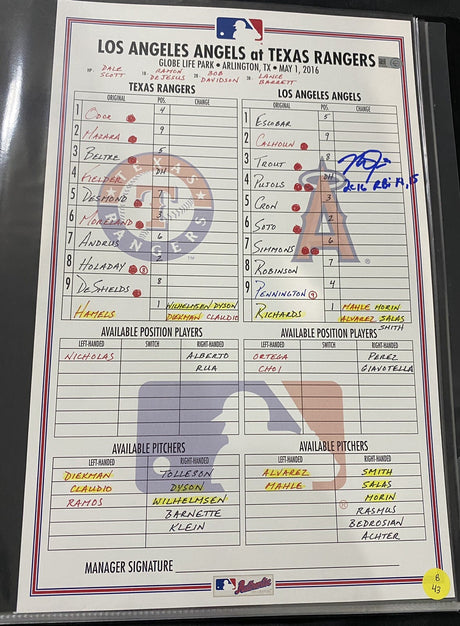 LOS ANGELES ANGELS at TEXAS RANGERS
GLOBE LIFE PARK • ARLINGTON, TX • MAY 1, 2016
HP DALE SCOTT 1B RAMON DEJESUS 2B BOB DAVIDSON 3B LANCE BARRETT
TEXAS RANGERS
ORIGINAL POS. CHANGE
1 ODOR 4
2 MAZARA 9
3 BELTRE 5
4 FIELDER DH
5 DESMOND 7
6 MORELAND 3
7 ANDRUS 6
8 HOLADAY 2
9 DESHIELDS 8
HAMELS 1 WILHELMSEN DYSON
DIEKMAN CLAUDIO
LOS ANGELES ANGELS
ORIGINAL POS. CHANGE
1 ESCOBAR 5
2 CALHOUN 9
3 TROUT 8
4 PUJOLS DH
5 CRON 3
6 SOTO 2
7 SIMMONS 6
8 ROBINSON 7
9 PENNINGTON 4
RICHARDS 1 MAHLE MORIN
ALVAREZ SALAS
SMITH
TEXAS
RANGERS
AVAILABLE POSITION PLAYERS
LEFT-HANDED SWITCH RIGHT-HANDED
NICHOLAS ALBERTO
RUA
AVAILABLE POSITION PLAYERS
LEFT-HANDED SWITCH RIGHT-HANDED
ORTEGA PEREZ
CHOI GIAVOTELLA
AVAILABLE PITCHERS
LEFT-HANDED RIGHT-HANDED
DIEKMAN TOLLESON
CLAUDIO DYSON
RAMOS WILHELMSEN
BARNETTE
KLEIN
AVAILABLE PITCHERS
LEFT-HANDED RIGHT-HANDED
ALVAREZ SMITH
MAHLE SALAS
MORIN
RASMUS
BEDROSIAN
ACHTER
MANAGER SIGNATURE
Authentic
B
43